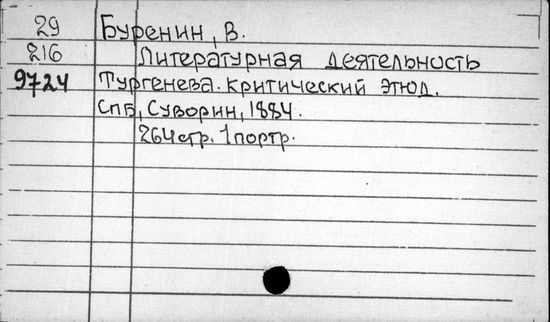 29 Буренин, В.
216 Литературная деятельность
9724 Тургенева. Критический этюд.
СПБ, Суворин, 1884.
264стр. 1портр.